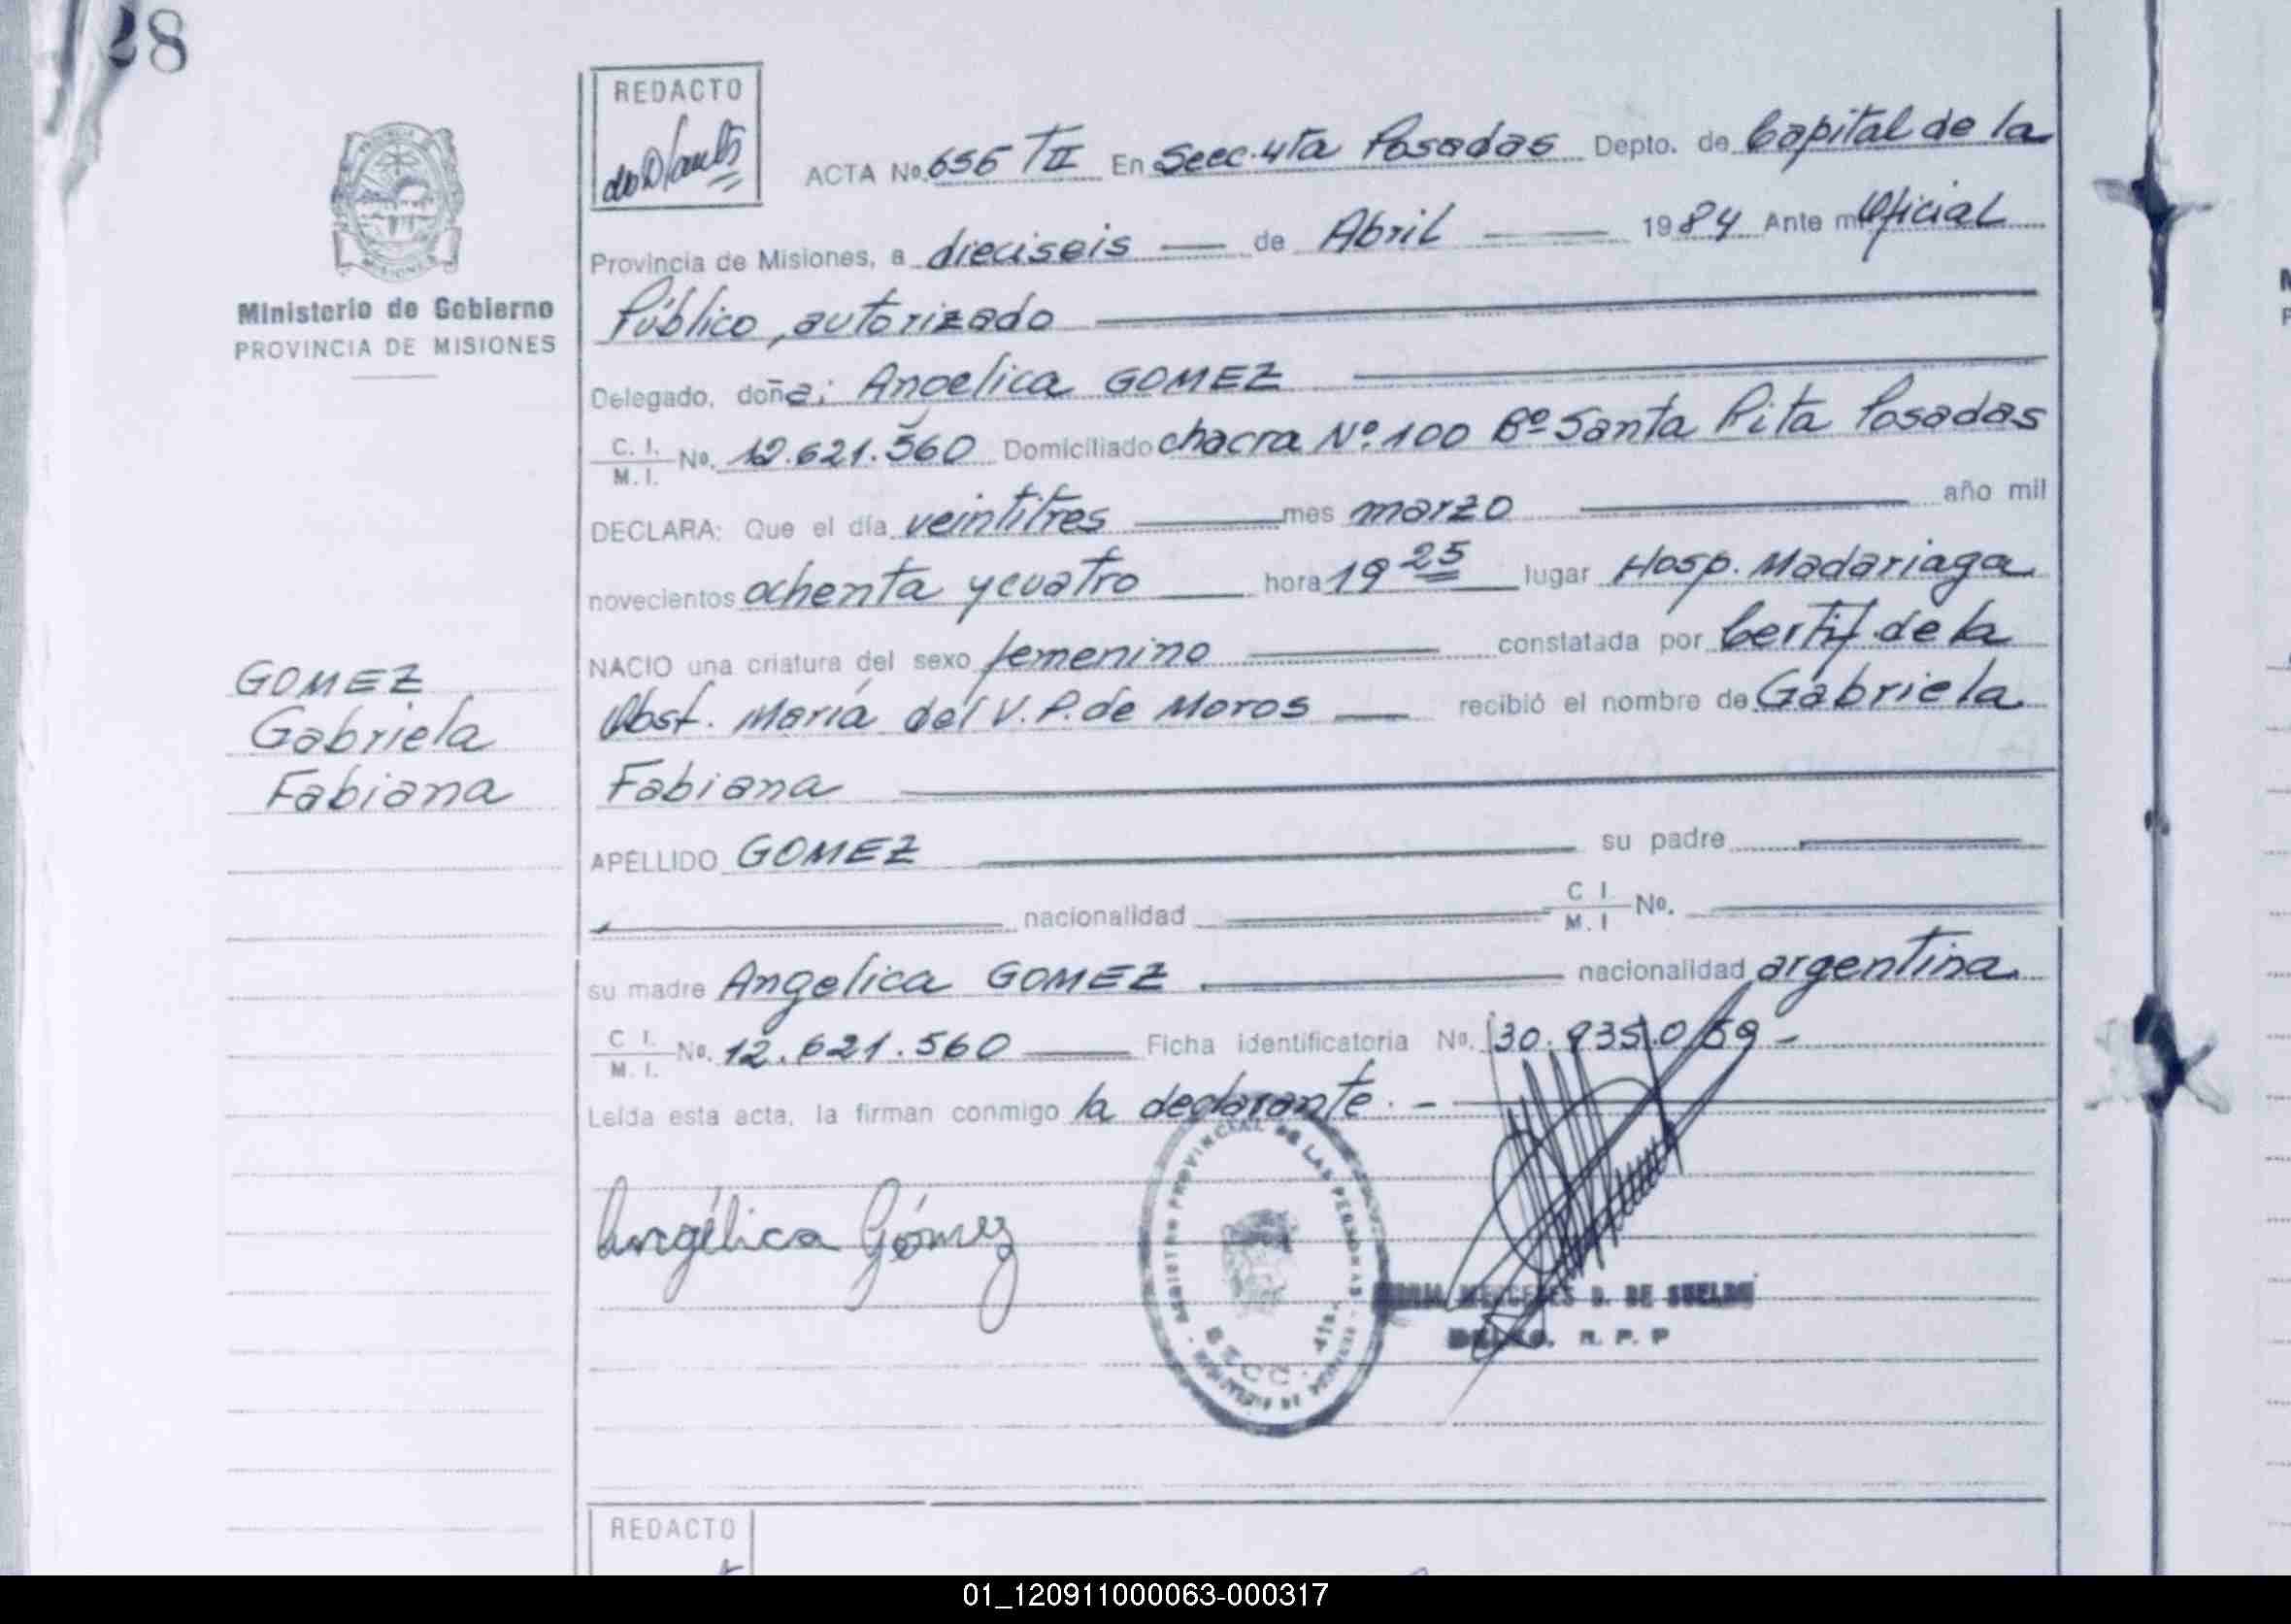 28
REDACTO
ACTA No. 656 TII En Secc. 4ta Posadas Depto. de Capital de la
Provincia de Misiones, a dieciseis de Abril 1984 Ante mi Oficial
Público, autorizado
Ministerio de Gobierno
PROVINCIA DE MISIONES
Delegado, doña: Angelica GOMEZ
C. I.
M. I.
No. 12.621.560 Domiciliado chacra Nº 100 Bº Santa Rita Posadas
DECLARA: Que el día veintitres mes marzo año mil
novecientos ochenta y cuatro hora 19 25 lugar Hosp. Madariaga
NACIO una criatura del sexo femenino constatada por Certif. de la
Obst. María del V. P. de Moros recibió el nombre de Gabriela
Fabiana
GOMEZ
Gabriela
Fabiana
APELLIDO GOMEZ su padre
nacionalidad C I. M. I No.
su madre Angelica GOMEZ nacionalidad argentina
C I.
M. I.
No. 12.621.560 Ficha identificatoria No. 30.935.059 -
Leída esta acta, la firman conmigo la declarante. -
Angélica Gómez
REGISTRO PROVINCIAL DE LAS PERSONAS
SECC. 4ta.
MERCEDES D. DE SUELDO
R. P. P
REDACTO
01_120911000063-000317